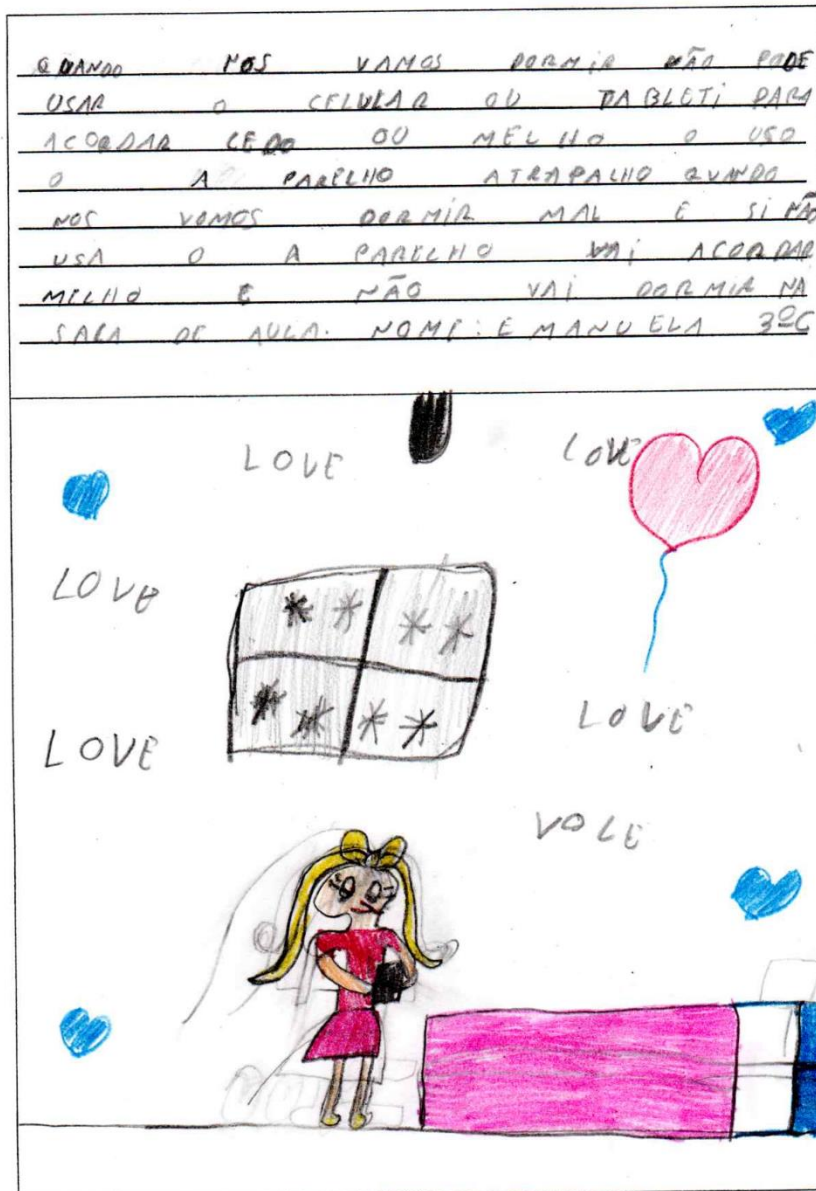 QUANDO NOS VAMOS DORMIR NÃO PODE
USAR O CELULAR OU TABLETI PARA
ACORDAR CEDO OU MELHO O USO
O A PARELHO ATRAPALHO QUANDO
NOS VOMOS DORMIR MAL E SI NÃO
USA O A PARELHO VAI ACORDAR
MELHO E NÃO VAI DORMIR NA
SALA DE AULA. NOME: EMANUELA 3ºC
LOVE LOVE
LOVE
LOVE LOVE
VOLE